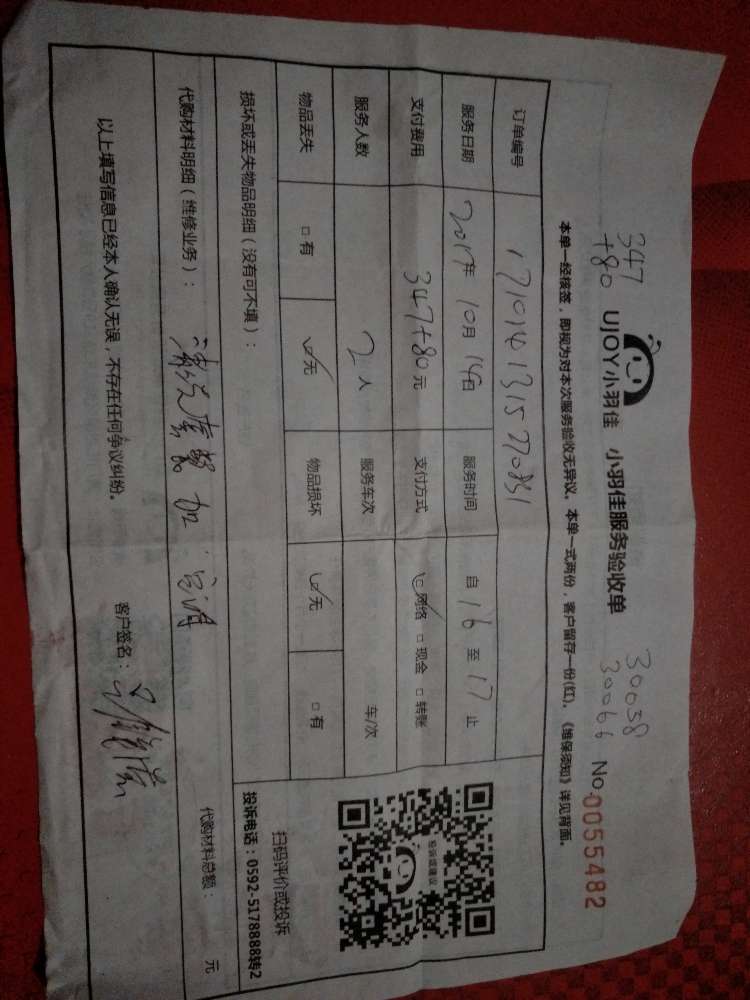 347
+80
30058
30066
UJOY小羽佳 小羽佳服务验收单 No.0055482
本单一经核签，即视为对本次服务验收无异议。本单一式两份，客户留存一份(红)。《维保须知》详见背面。
订单编号 1710141315270851
服务日期 2017年 10月 14日 服务时间 自 16 至 17 止
支付费用 347+80元 支付方式 ☑网络 □现金 □转账
服务人数 2人 服务车次 车/次
物品丢失 □有 ☑无 物品损坏 ☑无 □有
损坏或丢失物品明细（没有可不填）：
投诉或建议
扫码评价或投诉
投诉电话：0592-5178888转2
代购材料明细（维修业务）： 加 代购材料总额： 元
以上填写信息已经本人确认无误，不存在任何争议纠纷。 客户签名：